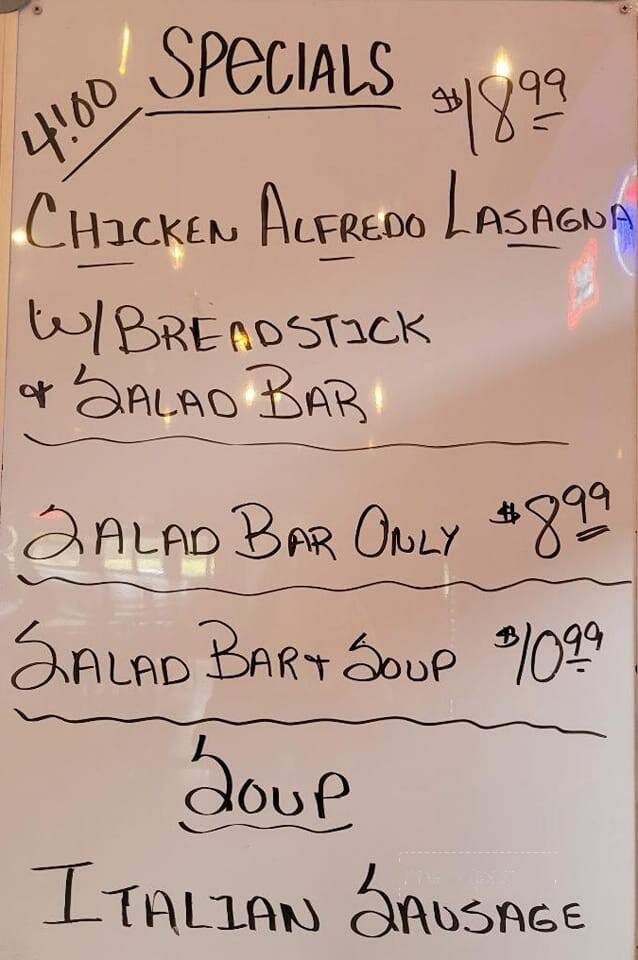 4:00 SPECIALS $18.99
CHICKEN ALFREDO LASAGNA
W/ BREADSTICK
+ SALAD BAR
SALAD BAR ONLY $8.99
SALAD BAR + SOUP $10.99
SOUP
ITALIAN SAUSAGE